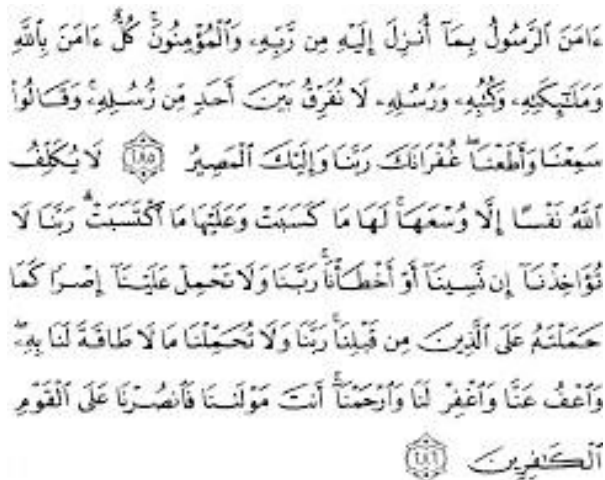 ءَامَنَ ٱلرَّسُولُ بِمَآ أُنزِلَ إِلَيْهِ مِن رَّبِّهِۦ وَٱلْمُؤْمِنُونَ ۚ كُلٌّ ءَامَنَ بِٱللَّهِ
وَمَلَـٰٓئِكَتِهِۦ وَكُتُبِهِۦ وَرُسُلِهِۦ لَا نُفَرِّقُ بَيْنَ أَحَدٍ مِّن رُّسُلِهِۦ ۚ وَقَالُوا۟
سَمِعْنَا وَأَطَعْنَا ۖ غُفْرَانَكَ رَبَّنَا وَإِلَيْكَ ٱلْمَصِيرُ ﴿٢٨٥﴾ لَا يُكَلِّفُ
ٱللَّهُ نَفْسًا إِلَّا وُسْعَهَا ۚ لَهَا مَا كَسَبَتْ وَعَلَيْهَا مَا ٱكْتَسَبَتْ ۗ رَبَّنَا لَا
تُؤَاخِذْنَآ إِن نَّسِينَآ أَوْ أَخْطَأْنَا ۚ رَبَّنَا وَلَا تَحْمِلْ عَلَيْنَآ إِصْرًا كَمَا
حَمَلْتَهُۥ عَلَى ٱلَّذِينَ مِن قَبْلِنَا ۚ رَبَّنَا وَلَا تُحَمِّلْنَا مَا لَا طَاقَةَ لَنَا بِهِۦ ۖ
وَٱعْفُ عَنَّا وَٱغْفِرْ لَنَا وَٱرْحَمْنَآ ۚ أَنتَ مَوْلَىٰنَا فَٱنصُرْنَا عَلَى ٱلْقَوْمِ
ٱلْكَـٰفِرِينَ ﴿٢٨٦﴾